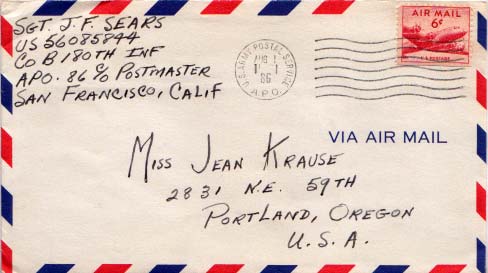 SGT. J. F. SEARS
US 56085844
CO B 180TH INF
APO. 86 C/O POSTMASTER
SAN FRANCISCO, CALIF
U.S. ARMY POSTAL SERVICE
AUG 1
86
A.P.O.
AIR MAIL
6¢
U.S. POSTAGE
VIA AIR MAIL
MISS JEAN KRAUSE
2831 N.E. 59TH
PORTLAND, OREGON
U.S.A.